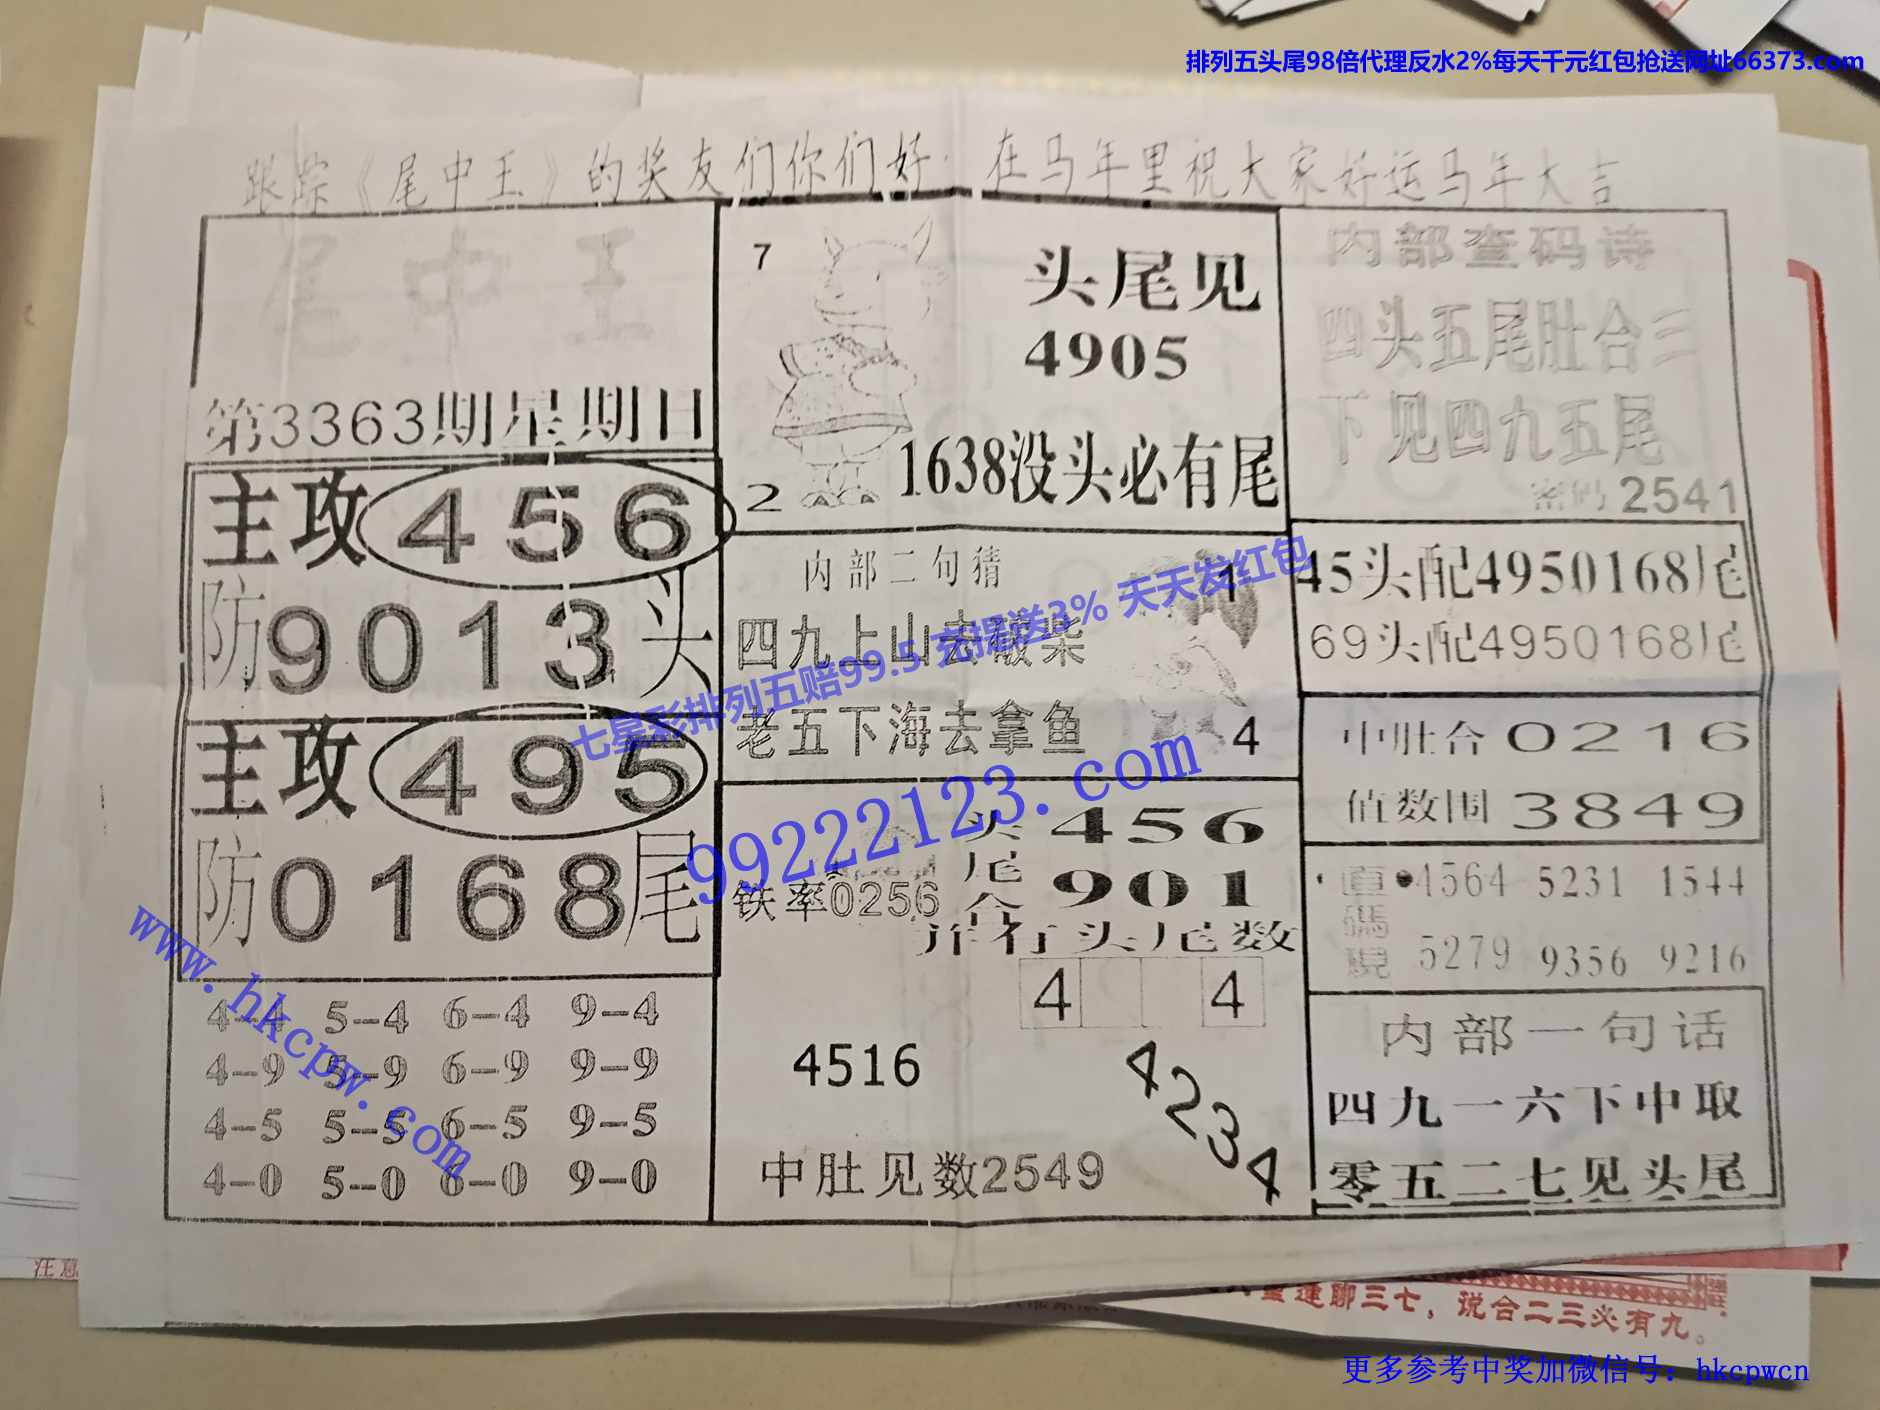 排列五头尾98倍代理反水2%每天千元红包抢送网址66373.com
跟踪《尾中王》的奖友们你们好. 在马年里祝大家好运马年大吉
尾中王
第3363期星期日
主攻456
防9013头
主攻495
防0168尾
4-4 5-4 6-4 9-4
4-9 5-9 6-9 9-9
4-5 5-5 6-5 9-5
4-0 5-0 6-0 9-0
7
头尾见
4905
1638没头必有尾
2
内部二句猜
1
四九上山去破柴
老五下海去拿鱼
4
头 456
尾
合 901
铁率0256
并行头尾数
4 4
4516
4234
中肚见数2549
内部查码诗
四头五尾肚合三
下见四九五尾
密码2541
45头配4950168尾
69头配4950168尾
中肚合0216
值数围3849
直碼現
4564 5231 1544
5279 9356 9216
内部一句话
四九一六下中取
零五二七见头尾
七星彩排列五赔99.5 充提送3% 天天发红包
99222123.com
www.hkcpw.com
注意
逢聊三七，说合二三必有九。
更多参考中奖加微信号：hkcpwcn